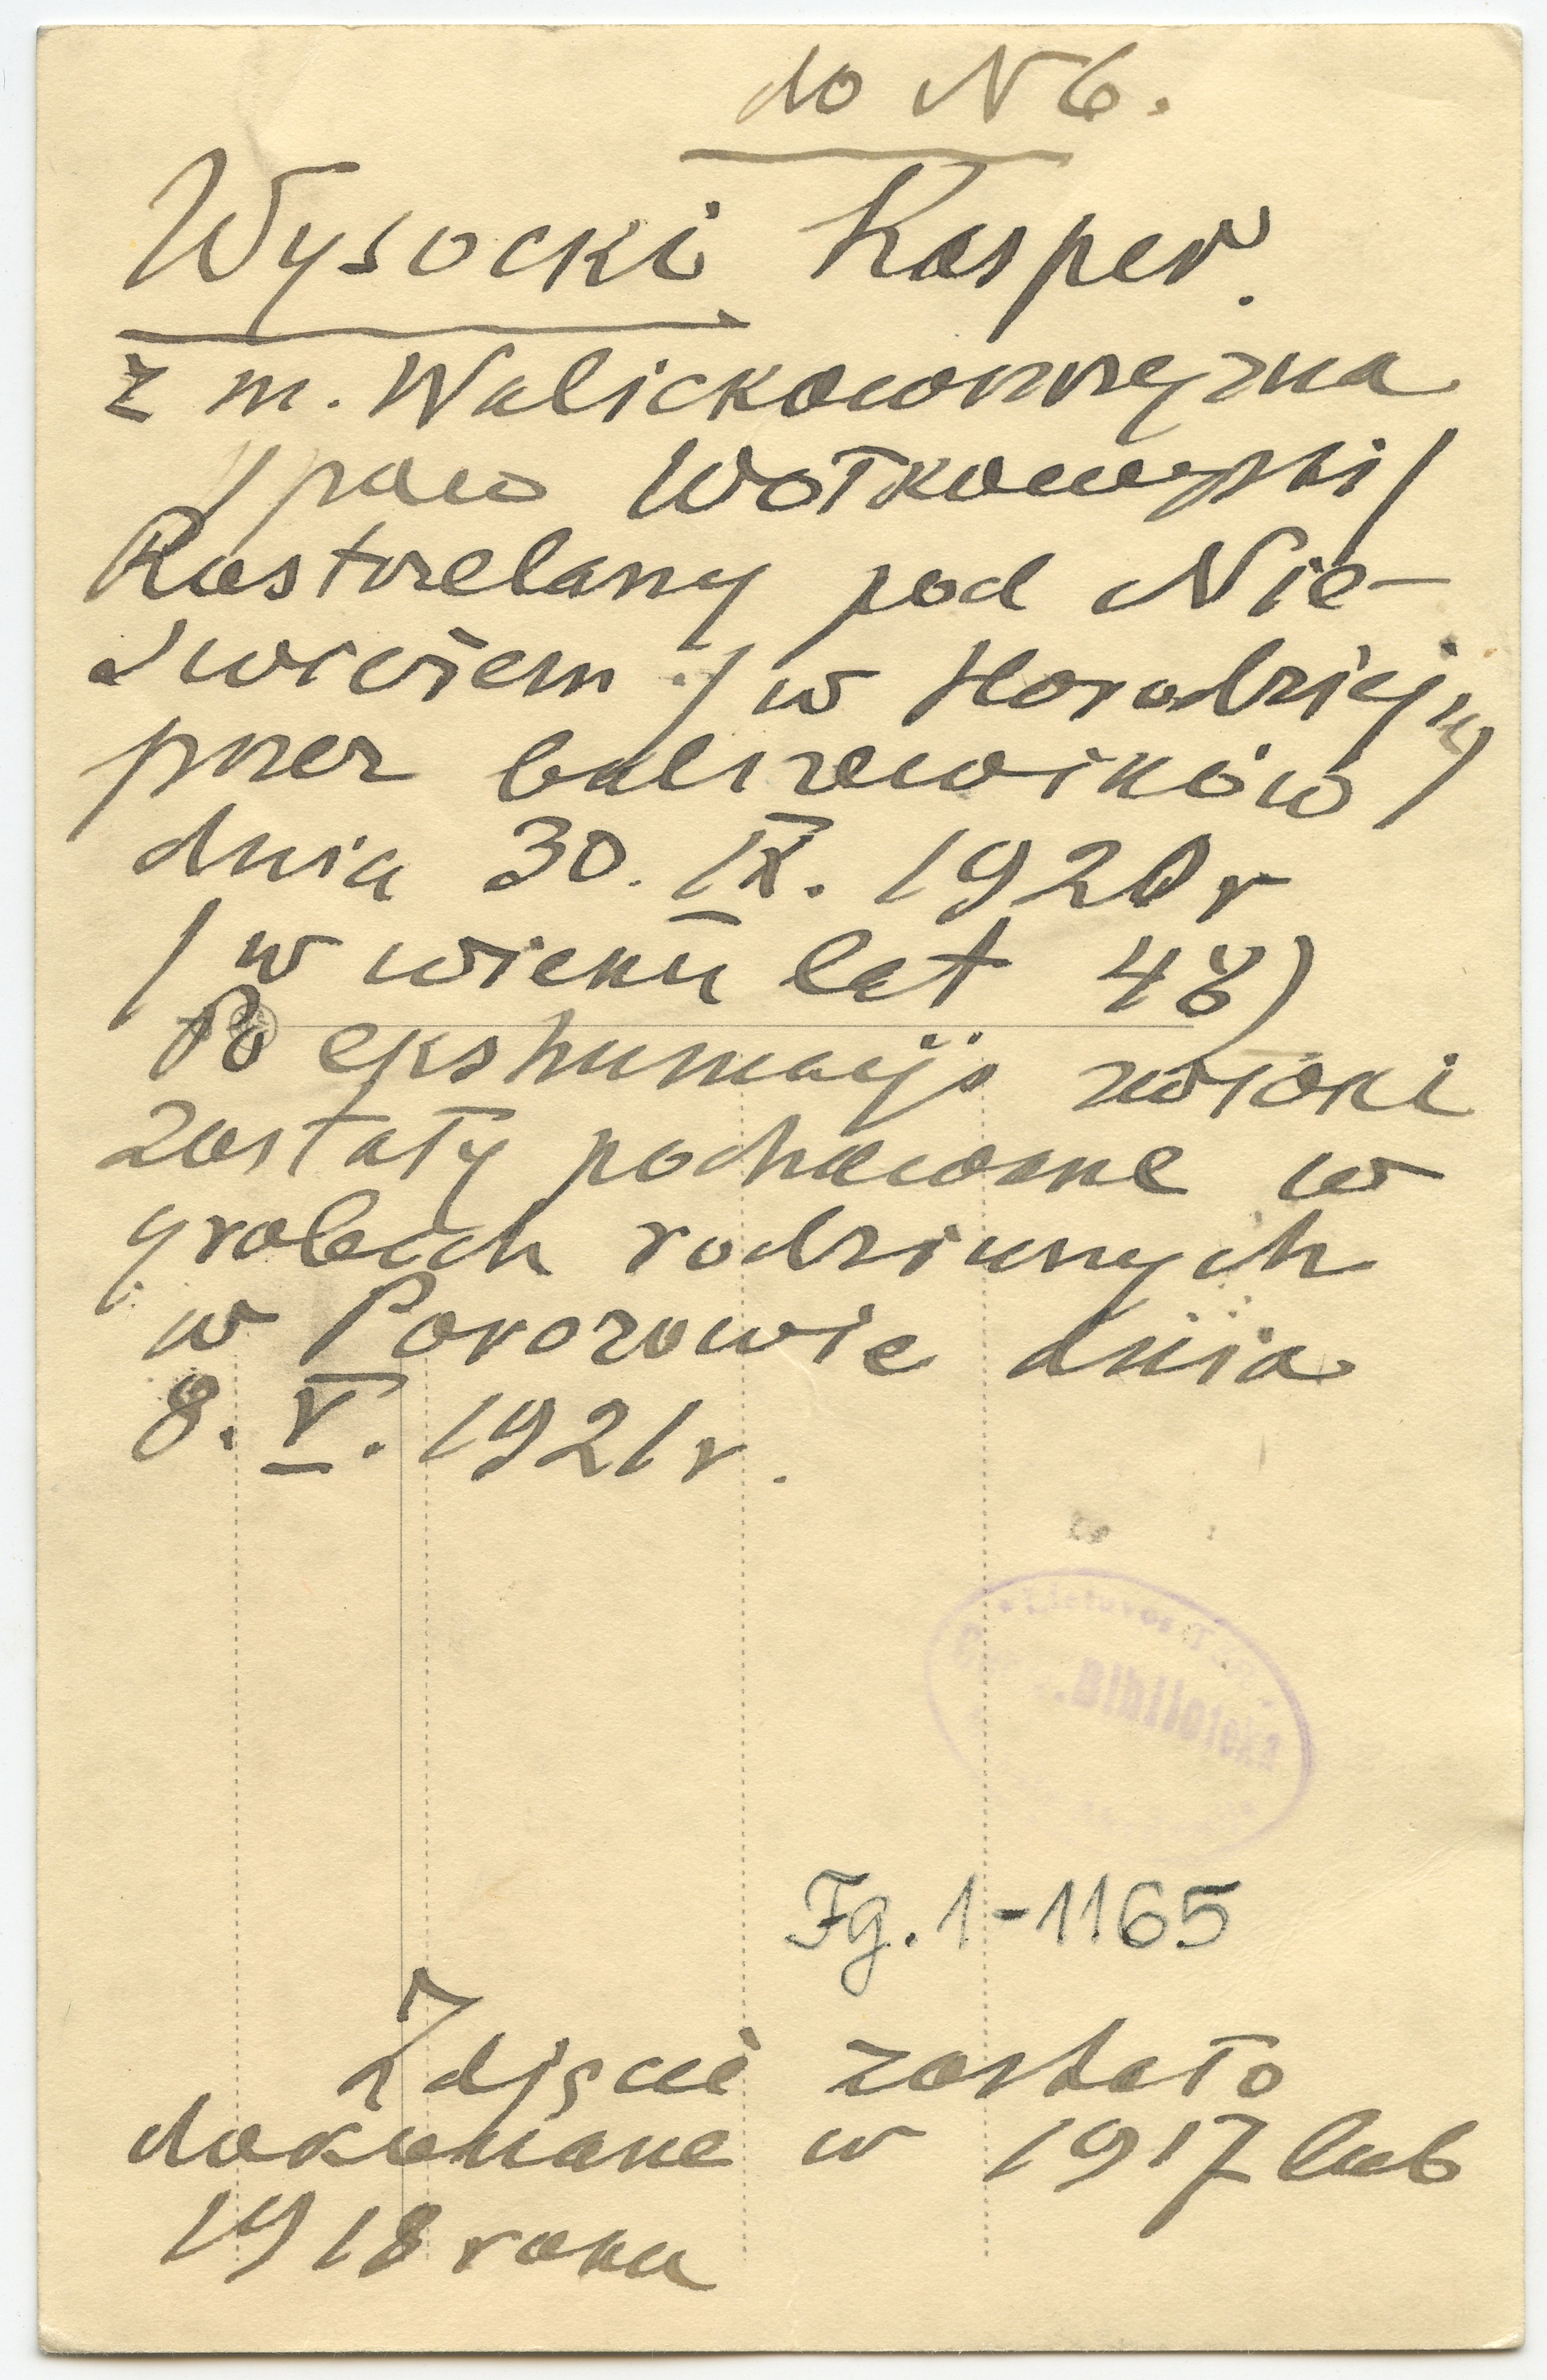 do N 6.
Wysocki Kasper.
z m. Walickowszczyzna
/pow Wołkowyski/
Rostrzelany pod Nie-
świeżem / w Horodzieju/
przez bolszewików
dnia 30. IX. 1920 r
/w wieku lat 48)
Po ekshumacji zwłoki
zostały pochowane w
grobach rodzinnych
w Porozowie dnia
8. V. 1921 r.
Biblioteka
Fg. 1-1165
Zdjęcie zostało
dokonane w 1917 lub
1918 roku